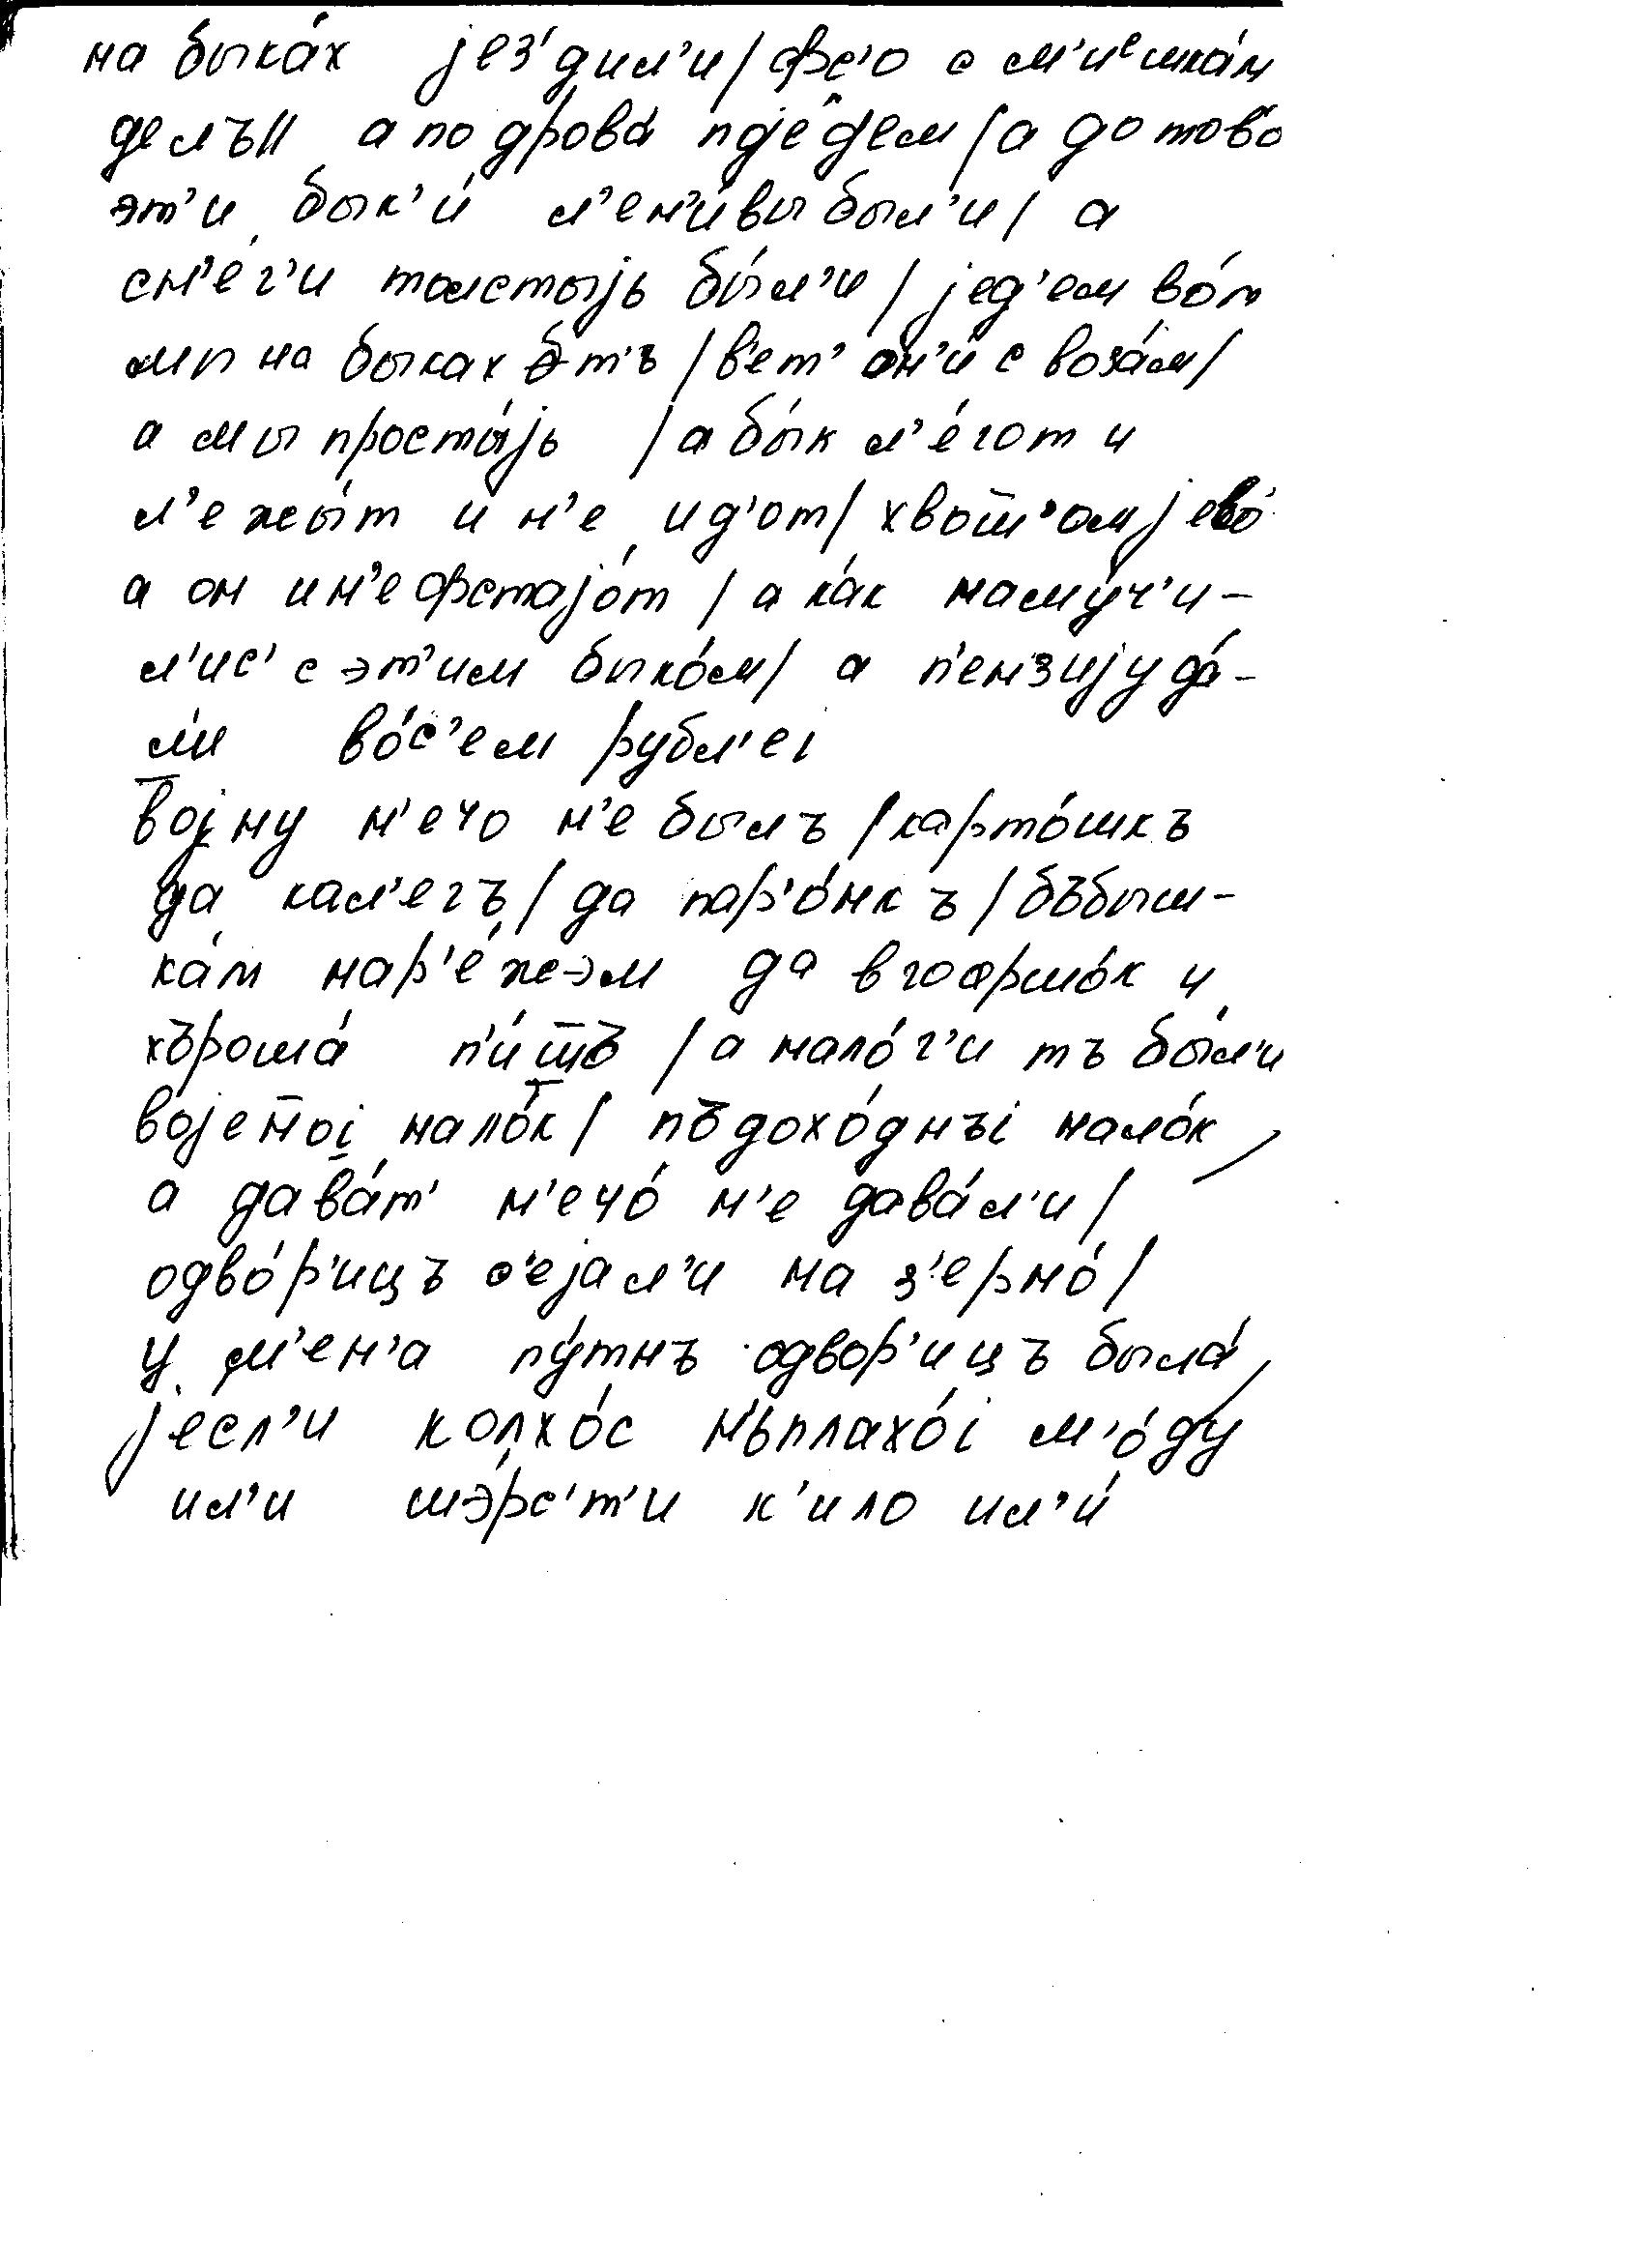 на быка́х јез'дил'и / фс'о с м'иешка́м
делъ // а по дрова́ пје́дем / а до тово
эт'и бык'и́ л'ен'и́вы был'и / а
сн'е́г'и толстыјь бы́л'и / јед'ем во́т
мы на быках э́т'ъ / в'ет' он'и́ с воза́м /
а мы просты́јь / а бы́к л'е́гот и
л'ежы́т и н'е ид'от / хвот̅'ом јево́
а он и н'е фстајо́т / а ка́к наму́ч'и-
л'ис' с эт'им быко́м / а п'ензију да́-
л'и во́с'ем рубл'еі
војну н'ечо н'е былъ / карто́шкъ
да кал'егъ / да пар'о́нкъ / бъбыш-
ка́м нар'е́жэм да в горшо́к и
хъроша́ п'и́ш̅ъ / а нало́г'и тъ бы́л'и
војен̅оі нало́к / пъдохо́днъі нало́к /
а дава́т' н'ечо́ н'е дава́л'и /
одво́р'ицъ с'ејал'и на з'ерно́ /
у м'ен'а пу́тнъ одвор'ицъ была́ /
јесл'и колхо́с н'ьплахо́і м'о́ду
ил'и шэ́рс'т'и к'ило ил'и́